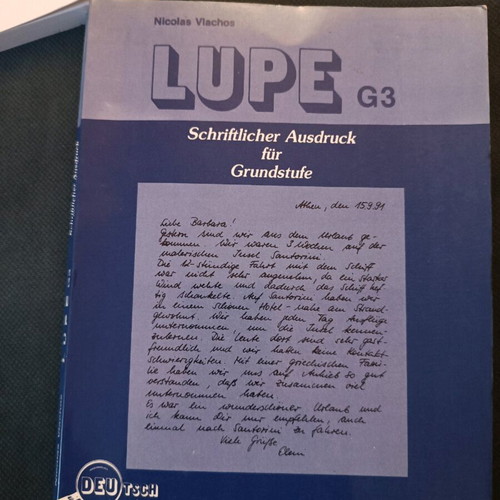 Nicolas Vlachos
LUPE G3
Schriftlicher Ausdruck
für
Grundstufe
Athen, den 15.9.91
Liebe Barbara!
Gestern sind wir aus dem Urlaub ge-
kommen. Wir waren 3 Wochen auf der
malerischen Insel Santorini.
Die 12-stündige Fahrt mit dem Schiff
war nicht sehr angenehm, da ein starker
Wind wehte und dadurch das Schiff hef-
tig schaukelte. Auf Santorini haben wir
in einem schönen Hotel - nahe am Strand -
gewohnt. Wir haben jeden Tag Ausflüge
unternommen, um die Insel kennen-
zulernen. Die Leute dort sind sehr gast-
freundlich und wir hatten keine Kontakt-
schwierigkeiten. Mit einer griechischen Fami-
lie haben wir uns auf Anhieb so gut
verstanden, daß wir zusammen viel
unternommen haben.
Es war ein wunderschöner Urlaub und
ich kann dir nur empfehlen, auch
einmal nach Santorini zu fahren.
Viele Grüße
DEUTSCH
LUPE G3
Schriftlicher Ausdruck